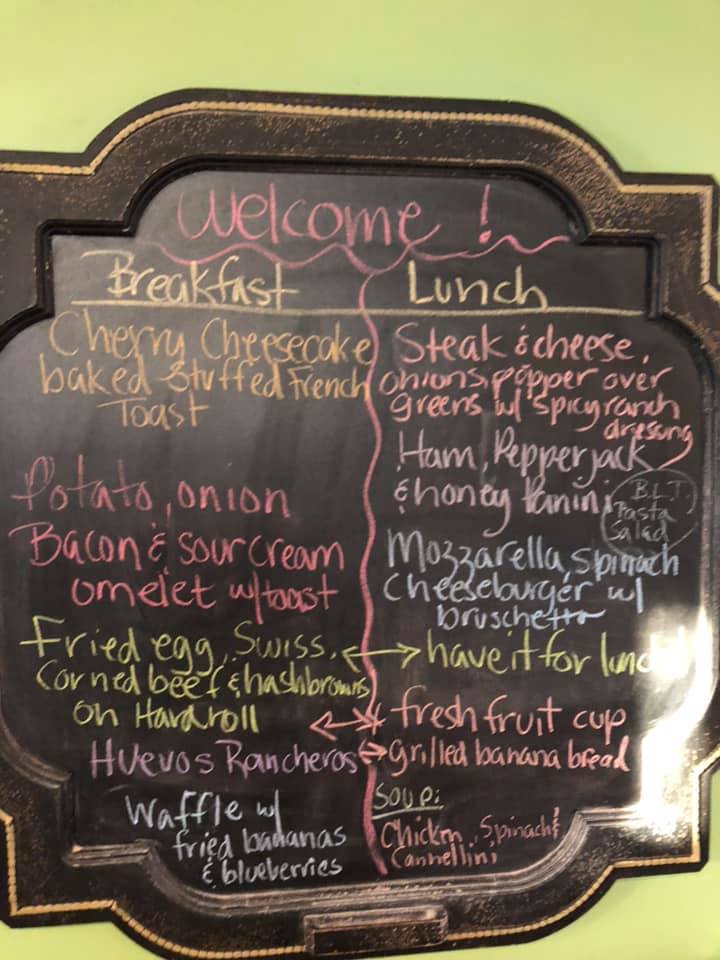 Welcome!
Breakfast
Cherry Cheesecake
baked Stuffed French
Toast
Potato, onion
Bacon & sour cream
omelet w/toast
Fried egg, Swiss,
Corned beef & hashbrowns
on Hardroll
Huevos Rancheros
Waffle w/
fried bananas
& blueberries
Lunch
Steak & cheese,
onions, pepper over
greens w/ spicy ranch
dressing
Ham, Pepperjack
& honey Panini
B.L.T.
Pasta
Salad
Mozzarella, spinach
Cheeseburger w/
bruschetta
have it for lunch
fresh fruit cup
grilled banana bread
Soup:
Chicken, Spinach &
Cannellini